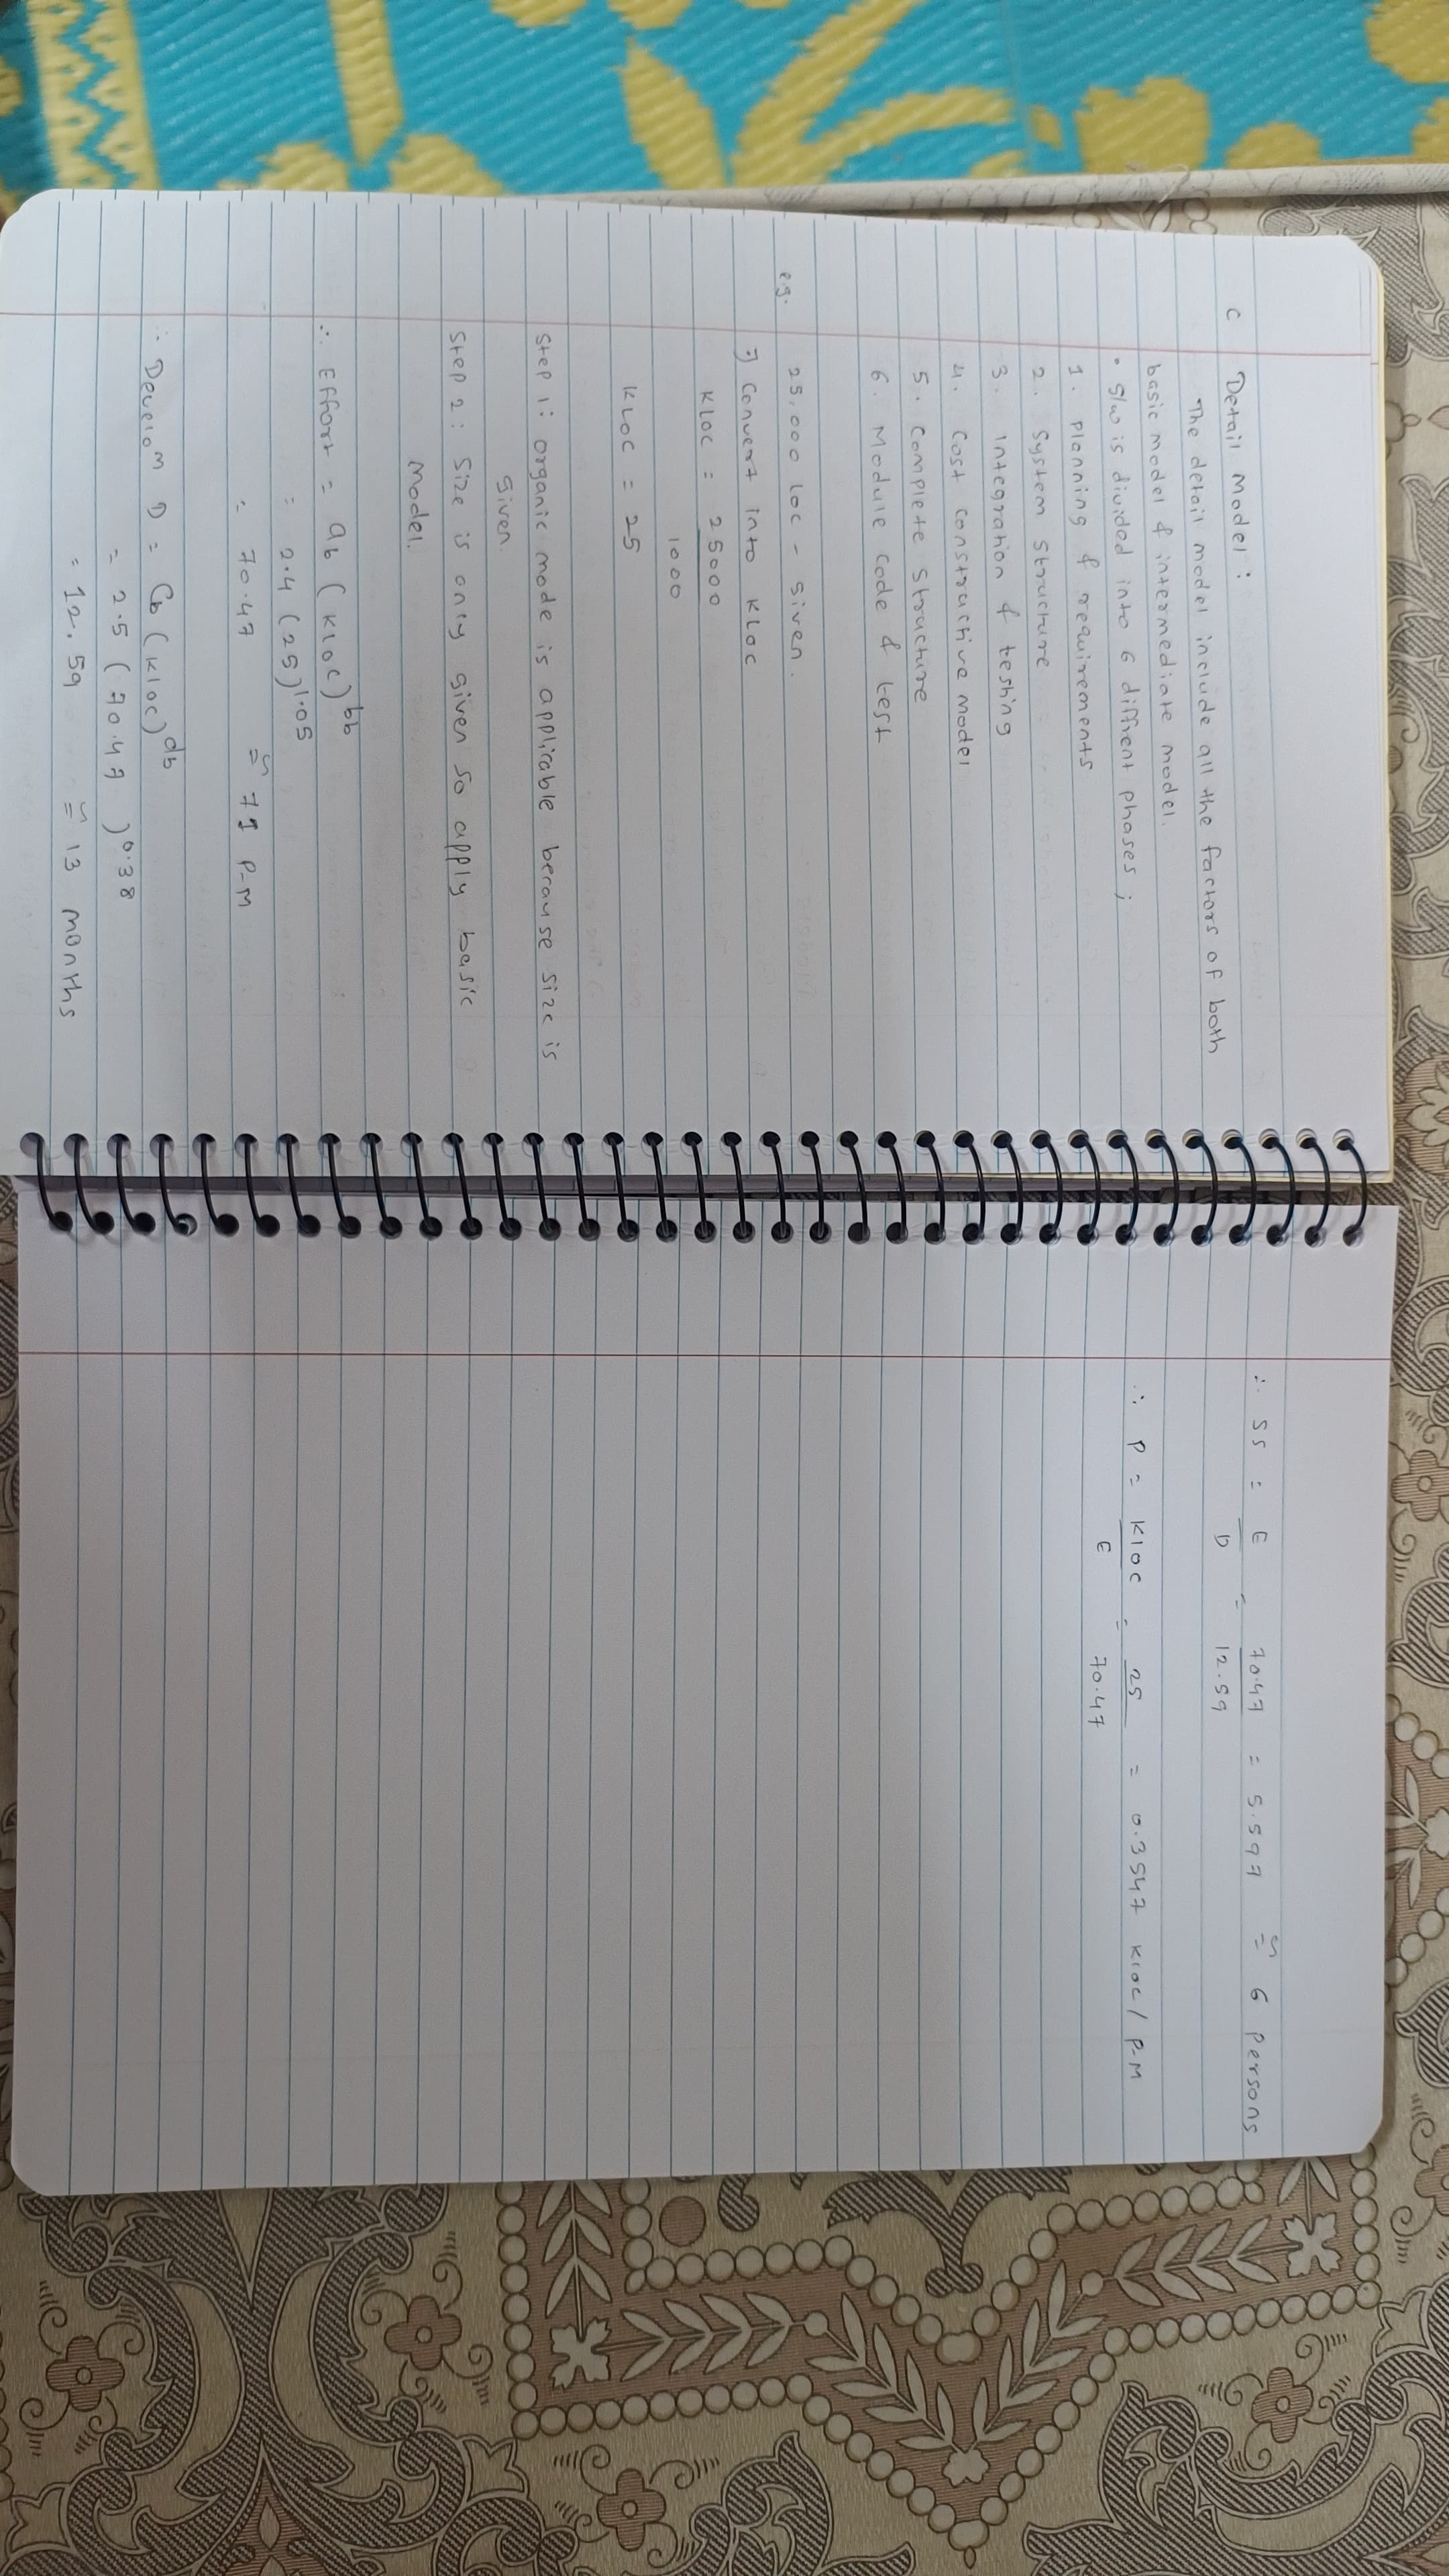 C Detail Model :
The detail model include all the factors of both
basic model & intermediate model.
• S/w is divided into 6 diffrent phases ;
1. planning & requirements
2. System structure
3. integration & testing
4. Cost constructive model
5. Complete structure
6. Module code & test
e.g. 25,000 loc - given.
⇒ Convert into kloc
kloc = 25000
1000
kloc = 25
Step 1: organic mode is applicable because size is
given.
Step 2: Size is only given so apply basic
Model.
∴ Effort = ab (kloc)^bb
= 2.4 (25)^1.05
= 70.47 ≅ 71 P-M
∴ Develom D = Cb (kloc)^db
= 2.5 (70.47)^0.38
= 12.59 ≅ 13 months
∴ SS = E/D = 70.47/12.59 = 5.597 ≅ 6 persons
∴ P = kloc/E = 25/70.47 = 0.3547 kloc/P-M